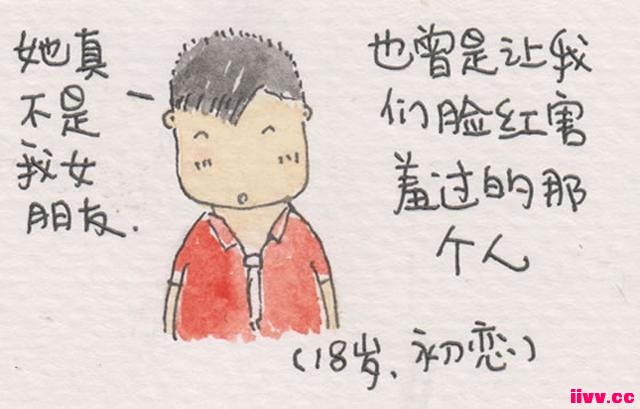 她真
不是
我女
朋友.
也曾是让我
们脸红害
羞过的那
个人
(18岁、初恋)
iivv.cc